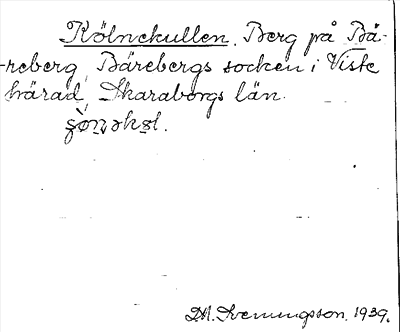 Kölnekullen. Berg på Bä-
reberg, Bärebergs socken i Viste
härad, Skaraborgs län.
D.A. Svenungsson. 1939.